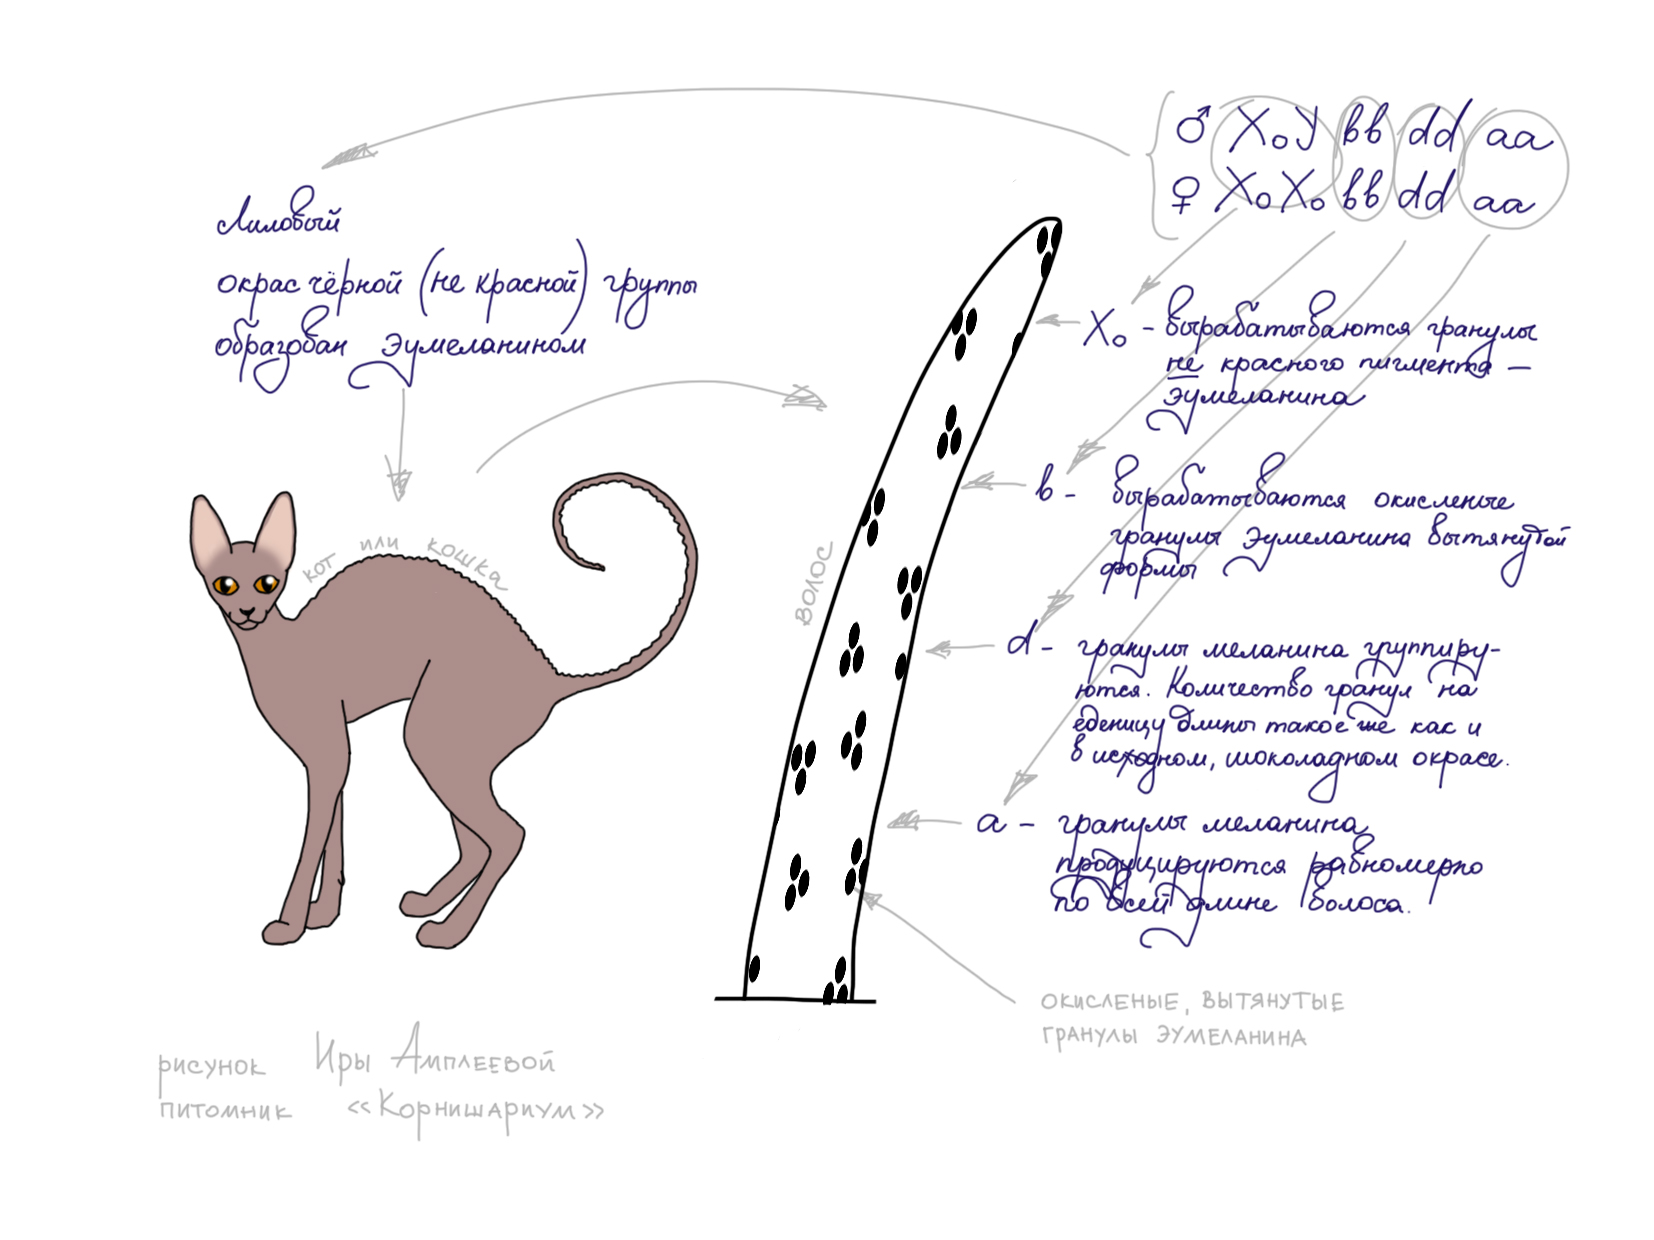 ♂ XoY вв dd aa
♀ XoXo вв dd aa
Лиловый
окрас чёрной (не красной) группы
образован Эумеланином
Xo - вырабатываются гранулы
не красного пигмента —
Эумеланина
в - вырабатываются окисленые
гранулы Эумеланина вытянутой
формы
d - гранулы меланина группиру-
ются. Количество гранул на
еденицу длины такое же как и
в исходном, шоколадном окрасе.
a - гранулы меланина
продуцируются равномерно
по всей длине волоса.
кот или кошка
волос
окисленые, вытянутые
гранулы эумеланина
рисунок Иры Амплеевой
питомник «Корнишариум»